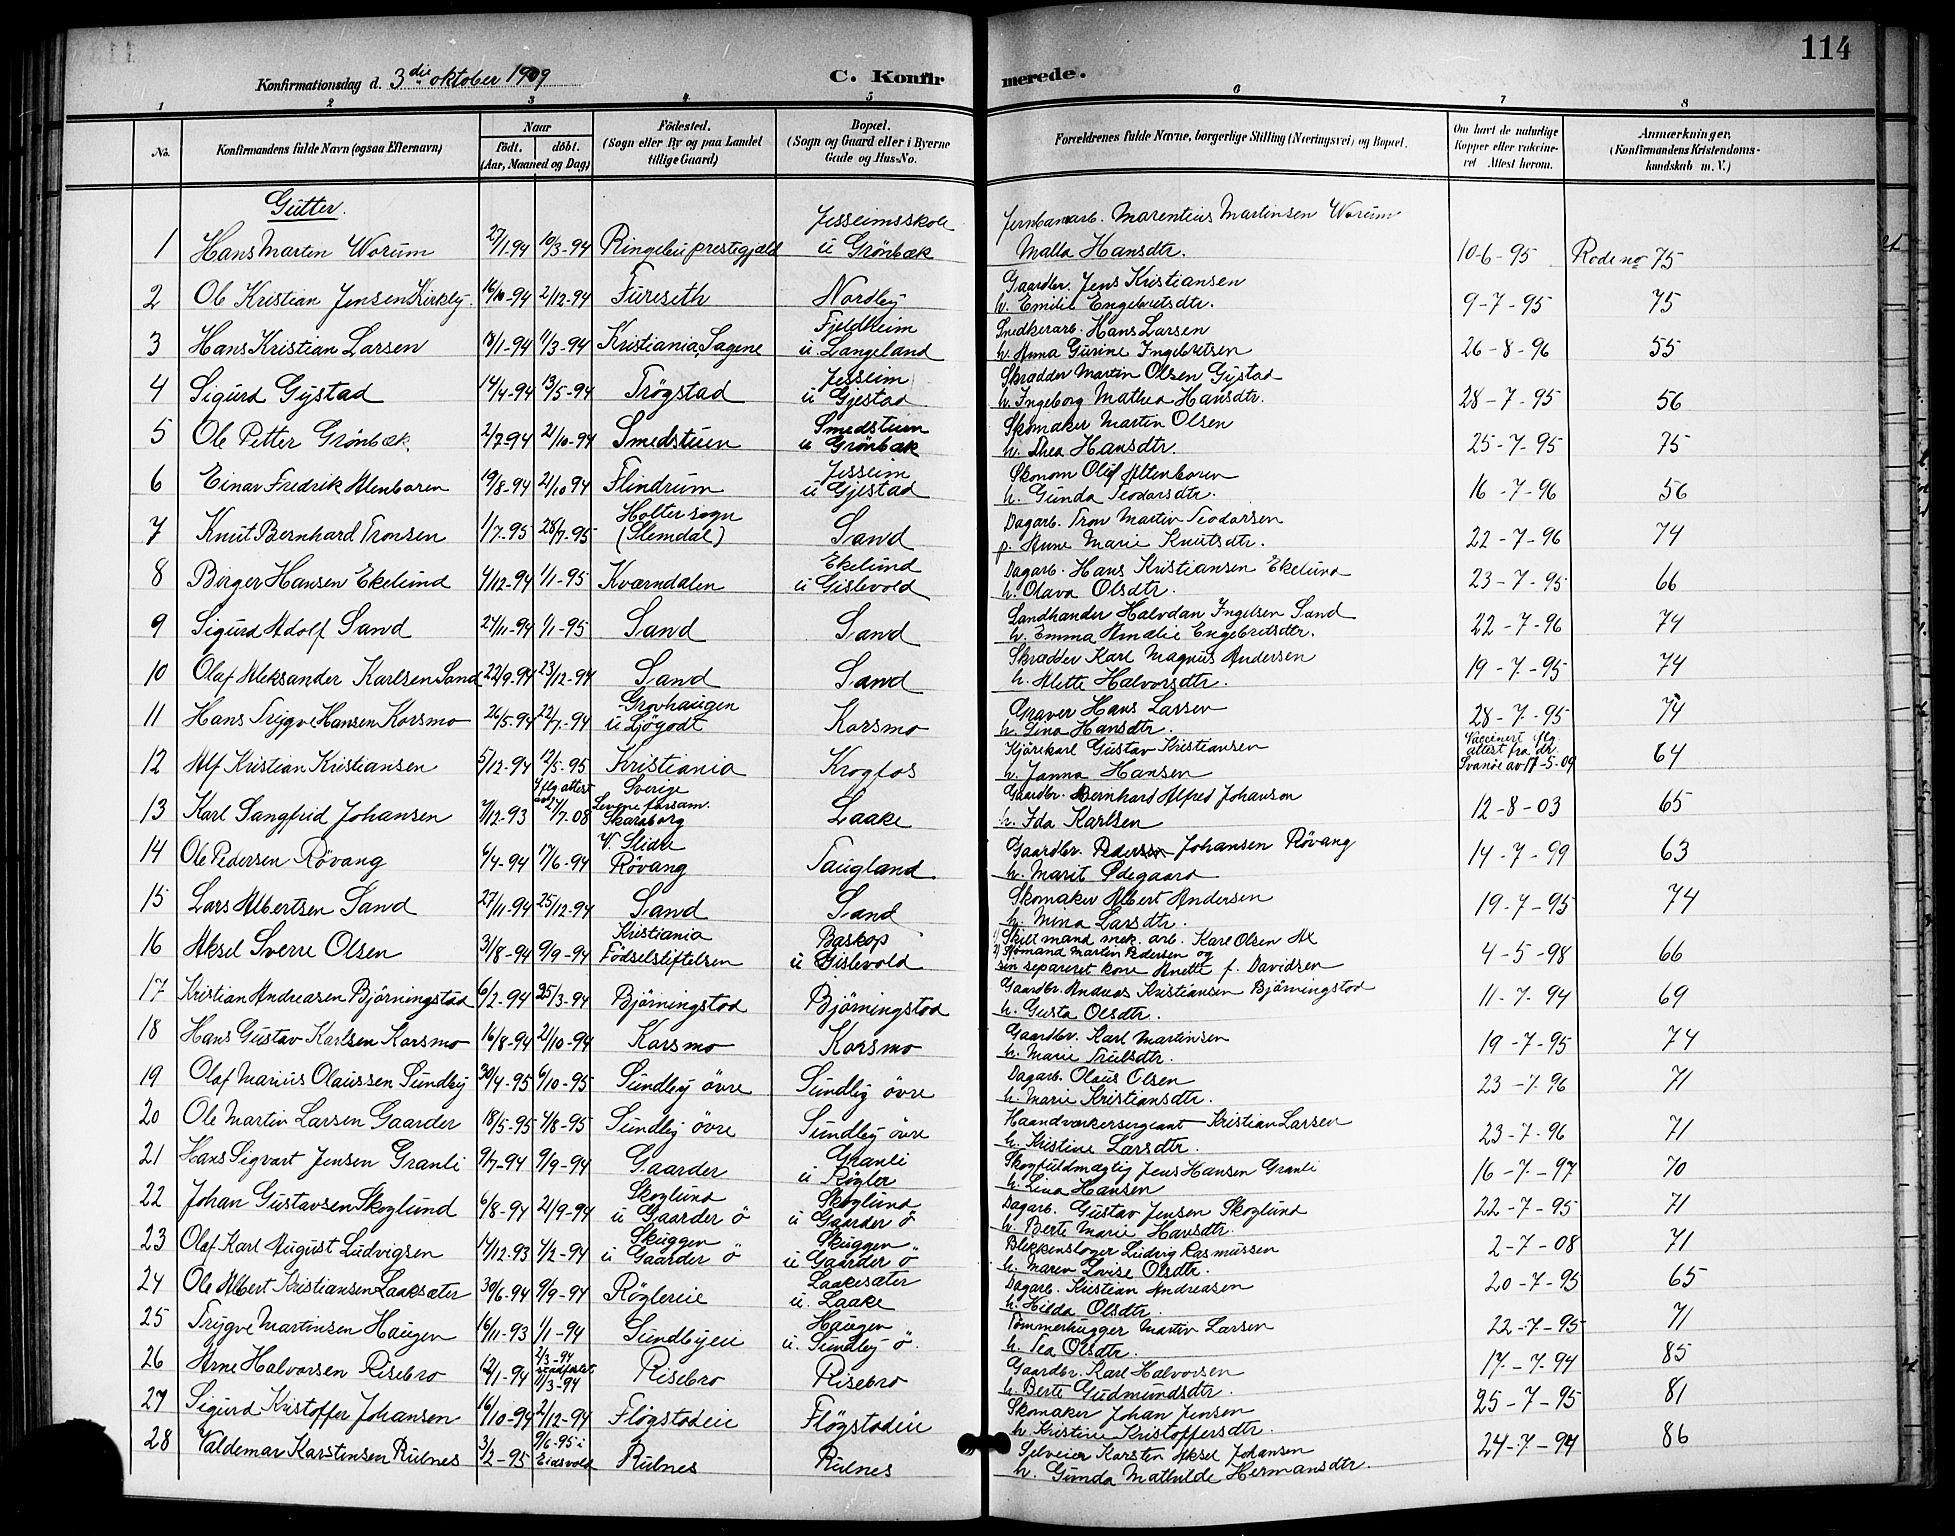 114
Konfirmationsdag d. 3die oktober 1909
C. Konfirmerede.
1 2 3 4 5 6 7 8
No.
Konfirmandens fulde Navn (ogsaa Efternavn)
Naar
født. døbt.
(Aar, Maaned og Dag)
Fødested.
(Sogn eller By og paa Landet
tillige Gaard)
Bopæl.
(Sogn og Gaard eller i Byerne
Gade og Hus-No.
Forældrenes fulde Navne, borgerlige Stilling (Næringsvei) og Bopæl.
Om havt de naturlige
Kopper eller vaccine-
ret Attest herom.
Anmærkninger.
(Konfirmandens Kristendoms-
kundskab m. V.)
Gutter.
1 Hans Martin Worum 27/1-94 10/3-94 Ringebu prestegjæld Jessheimsskole u Grönbæk Jernbanearb. Marentius Martinsen Worum Malla Hansdtr. 10-6-95 Rode no 75
2 Ole Kristian Jensen Kirkeby 16/10-94 2/12-94 Furuseth Nordby Gaardbr. Jens Kristiansen h. Emilie Engebretsdtr. 9-7-95 75
3 Hans Kristian Larsen 18/1-94 11/3-94 Kristiania, Sagene Fjeldheim u Langeland Snedkerarb. Hans Larsen h. Anna Gurine Ingebretsen 26-8-96 55
4 Sigurd Gystad 14/4-94 13/5-94 Trögstad Jessheim u Gjestad Skrædder Martin Olsen Gystad h. Ingeborg Mathea Hansdtr. 28-7-95 56
5 Ole Petter Grönbæk 2/7-94 21/10-94 Smedstuen Smedstuen u Grönbæk Skomaker Martin Olsen h. Thea Hansdtr. 25-7-95 75
6 Einar Fredrik Altenboren 19/8-94 21/10 94 Flindrum Jessheim u Gjestad Ökonom Oluf Altenboren h. Gunda Teodorsdtr. 16-7-96 56
7 Knut Bernhard Tronsen 1/7-95 28/7-95 Holter sogn (Slemdal) Sand Dagarb. Tron Martin Teodorsen p. Anne Marie Knutsdtr. 22-7-96 74
8 Birger Hansen Ekelund 4/12-94 1/1-95 Kværndalen Ekelund u Gislevold Dagarb. Hans Kristiansen Ekelund h. Olava Olsdtr. 23-7-95 66
9 Sigurd Adolf Sand 27/11-94 1/1-95 Sand Sand Landhandler Halvdan Ingelsen Sand h. Emma Amalie Engebretsdtr. 22-7-96 74
10 Olaf Aleksander Karlsen Sand 22/9-94 23/12-94 Sand Sand Skrædder Karl Magnus Andersen h. Alette Halvorsdtr. 19-7-95 74
11 Hans Trygve Hansen Korsmo 26/5-94 22/7-94 Grovhaugen u Ljögodt Korsmo Graver Hans Larsen h. Lina Hansdtr. 28-7-95 74
12 Alf Kristian Kristiansen 5/12-94 12/5-95 Kristiania Krogfos Kjörekarl Gustav Kristiansen h. Janna Hansen Vaccinert iflg. attest fra dr. Svanöe av 17-5-09 64
13 Karl Sangfrid Johansen 7/12-93 iflg attest 27/7-08 Sverige Levene forsam. Skaraborg Laake Gaardbr. Bernhard Alfred Johanson h. Ida Karlsen 12-8-03 65
14 Ole Pedersen Rövang 6/4-94 17/6-94 V. Slidre Rövang Taugland Gaardbr. Peder Johansen Rövang h. Marit Ødegaard 14-7-99 63
15 Lars Albertsen Sand 27/11-94 25/12-94 Sand Sand Skomaker Albert Andersen h. Mina Larsdtr. 19-7-95 74
16 Aksel Sverre Olsen 31/8-94 9/9-94 Kristiania Födselstiftelsen Baskop u Gislevold 1) Skilt mand mek. arb. Karl Olsen 2) Sömand Martin Pedersen og sin separeret kone Anette f. Davidsen 4-5-98 66
17 Kristian Andreasen Björningstad 6/2-94 25/3-94 Björningstad Björningstad Gaardbr. Andreas Kristiansen Björningstad h. Gusta Olsdtr. 11-7-94 69
18 Hans Gustav Karlsen Korsmo 16/8-94 21/10-94 Korsmo Korsmo Gaardbr. Karl Martinsen h. Marie Trulsdtr. 19-7-95 74
19 Olaf Marius Olaussen Sundby 30/4-95 6/10-95 Sundby övre Sundby övre Dagarb. Olaus Olsen h. Marie Kristiansdtr. 23-7-96 71
20 Ole Martin Larsen Gaarder 18/5-95 4/8-95 Sundby övre Sundby övre Haandverkersergeant Kristian Larsen h. Kristine Larsdtr. 23-7-96 71
21 Hans Sigvart Jensen Granli 9/7-94 9/9-94 Gaarder Granli u Rögler Skogfuldmægtig Jens Hansen Granli h. Lina Hansen 16-7-97 70
22 Johan Gustavsen Skoglund 6/8-94 21/9-94 Skoglund u Gaarder ö Skoglund u Gaarder ö Dagarb. Gustav Jensen Skoglund h. Berte Marie Hansdtr. 22-7-95 71
23 Olaf Karl August Ludvigsen 14/12-93 4/2-94 Skuggen u Gaarder ö Skuggen u Gaarder ö Blikkenslager Ludvig Rasmussen h. Maren Lovise Olsdtr. 2-7-08 71
24 Ole Albert Kristiansen Laakesæter 30/6-94 9/9-94 Röglereie Laakesæter u. Laake Dagarb. Kristian Andreasen h. Hilda Olsdtr. 20-7-95 65
25 Trygve Martinsen Haugen 16/11-93 1/1-94 Sundbyeie Haugen u. Sundby ö. Tømmerhugger Martin Larsen h. Tea Olsdtr. 22-7-95 71
26 Arne Halvorsen Risebro 12/1-94 2/3-94 stadfæstet 11/3-94 Risebro Risebro Gaardbr. Karl Halvorsen h. Berte Gudmundsdtr. 17-7-94 85
27 Sigurd Kristoffer Johansen 16/10-94 2/12-94 Flögstadeie Flögstadeie Skomaker Johan Jensen h. Kristine Kristoffersdtr. 25-7-95 81
28 Valdemar Karstensen Rulnes 3/2-95 9/6-95 i Eidsvold Rulnes Rulnes Selveier Karsten Aksel Johansen h. Gunda Mathilde Hermansdtr. 24-7-97 86